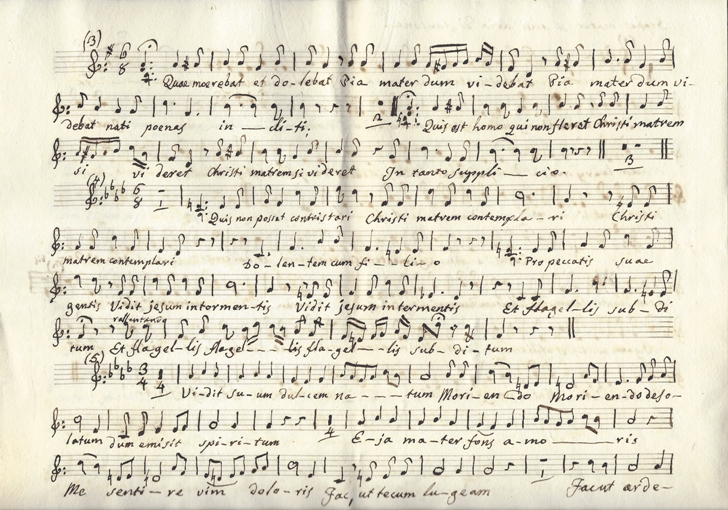 (3) 6 8 Quae moerebat et do-lebat Pia mater dum vi-debat Pia mater dum vi-
debat nati poenas in — cli-ti. 2 Quis est homo qui non fleret Christi matrem
si vi deret Christi matrem si videret In tanto suppli — cio. 3
(4) 6 8 1 Quis non possat contristari Christi matrem contempla-ri Christi
matrem contemplari Do-len-tem cum fi--li-o Pro peccatis suae
gentis Vidit jesum in tormen-tis Vidit jesum in termentis Et flagel-lis sub-di
rallentando
tum Et flagel-lis flagel---lis flagel--lis sub-di-tum
(5) 3 4 1 Vi-dit su-um dul-cem na----tum Mori-en-do Mori-en-do deso-
latum dum emisit spi-ri-tum 4 E-ja ma-ter fons a-mo——ris
Me senti-re vim dolo-ris Fac, ut tecum lu-geam Fac ut arde-